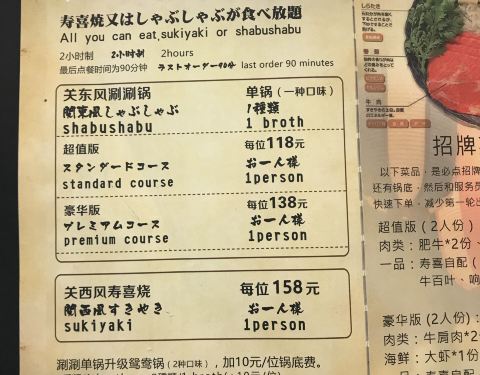 寿喜焼又はしゃぶしゃぶが食べ放題
All you can eat sukiyaki or shabushabu
2小时制 2小时制 2hours
最后点餐时间为90分钟 ラストオーダー90分 last order 90 minutes
关东风涮涮锅 单锅（一种口味）
関東風しゃぶしゃぶ 1種類
shabushabu 1 broth
超值版 每位118元
スタンダードコース お一人様
standard course 1person
豪华版 每位138元
プレミアムコース お一人様
premium course 1person
关西风寿喜烧 每位158元
関西風すきやき お一人様
sukiyaki 1person
涮涮单锅升级鸳鸯锅（2种口味），加10元/位锅底费。
しらたき
春菊
牛肉
招牌
以下菜品，是必点招牌
还有锅底，然后和服务员
快速下单，减少第一轮出
超值版（2人份）
肉类：肥牛*2份、
一品：寿喜自配（
牛百叶、响
豪华版（2人份）：
肉类：牛肩肉*2
海鲜：大虾*1份